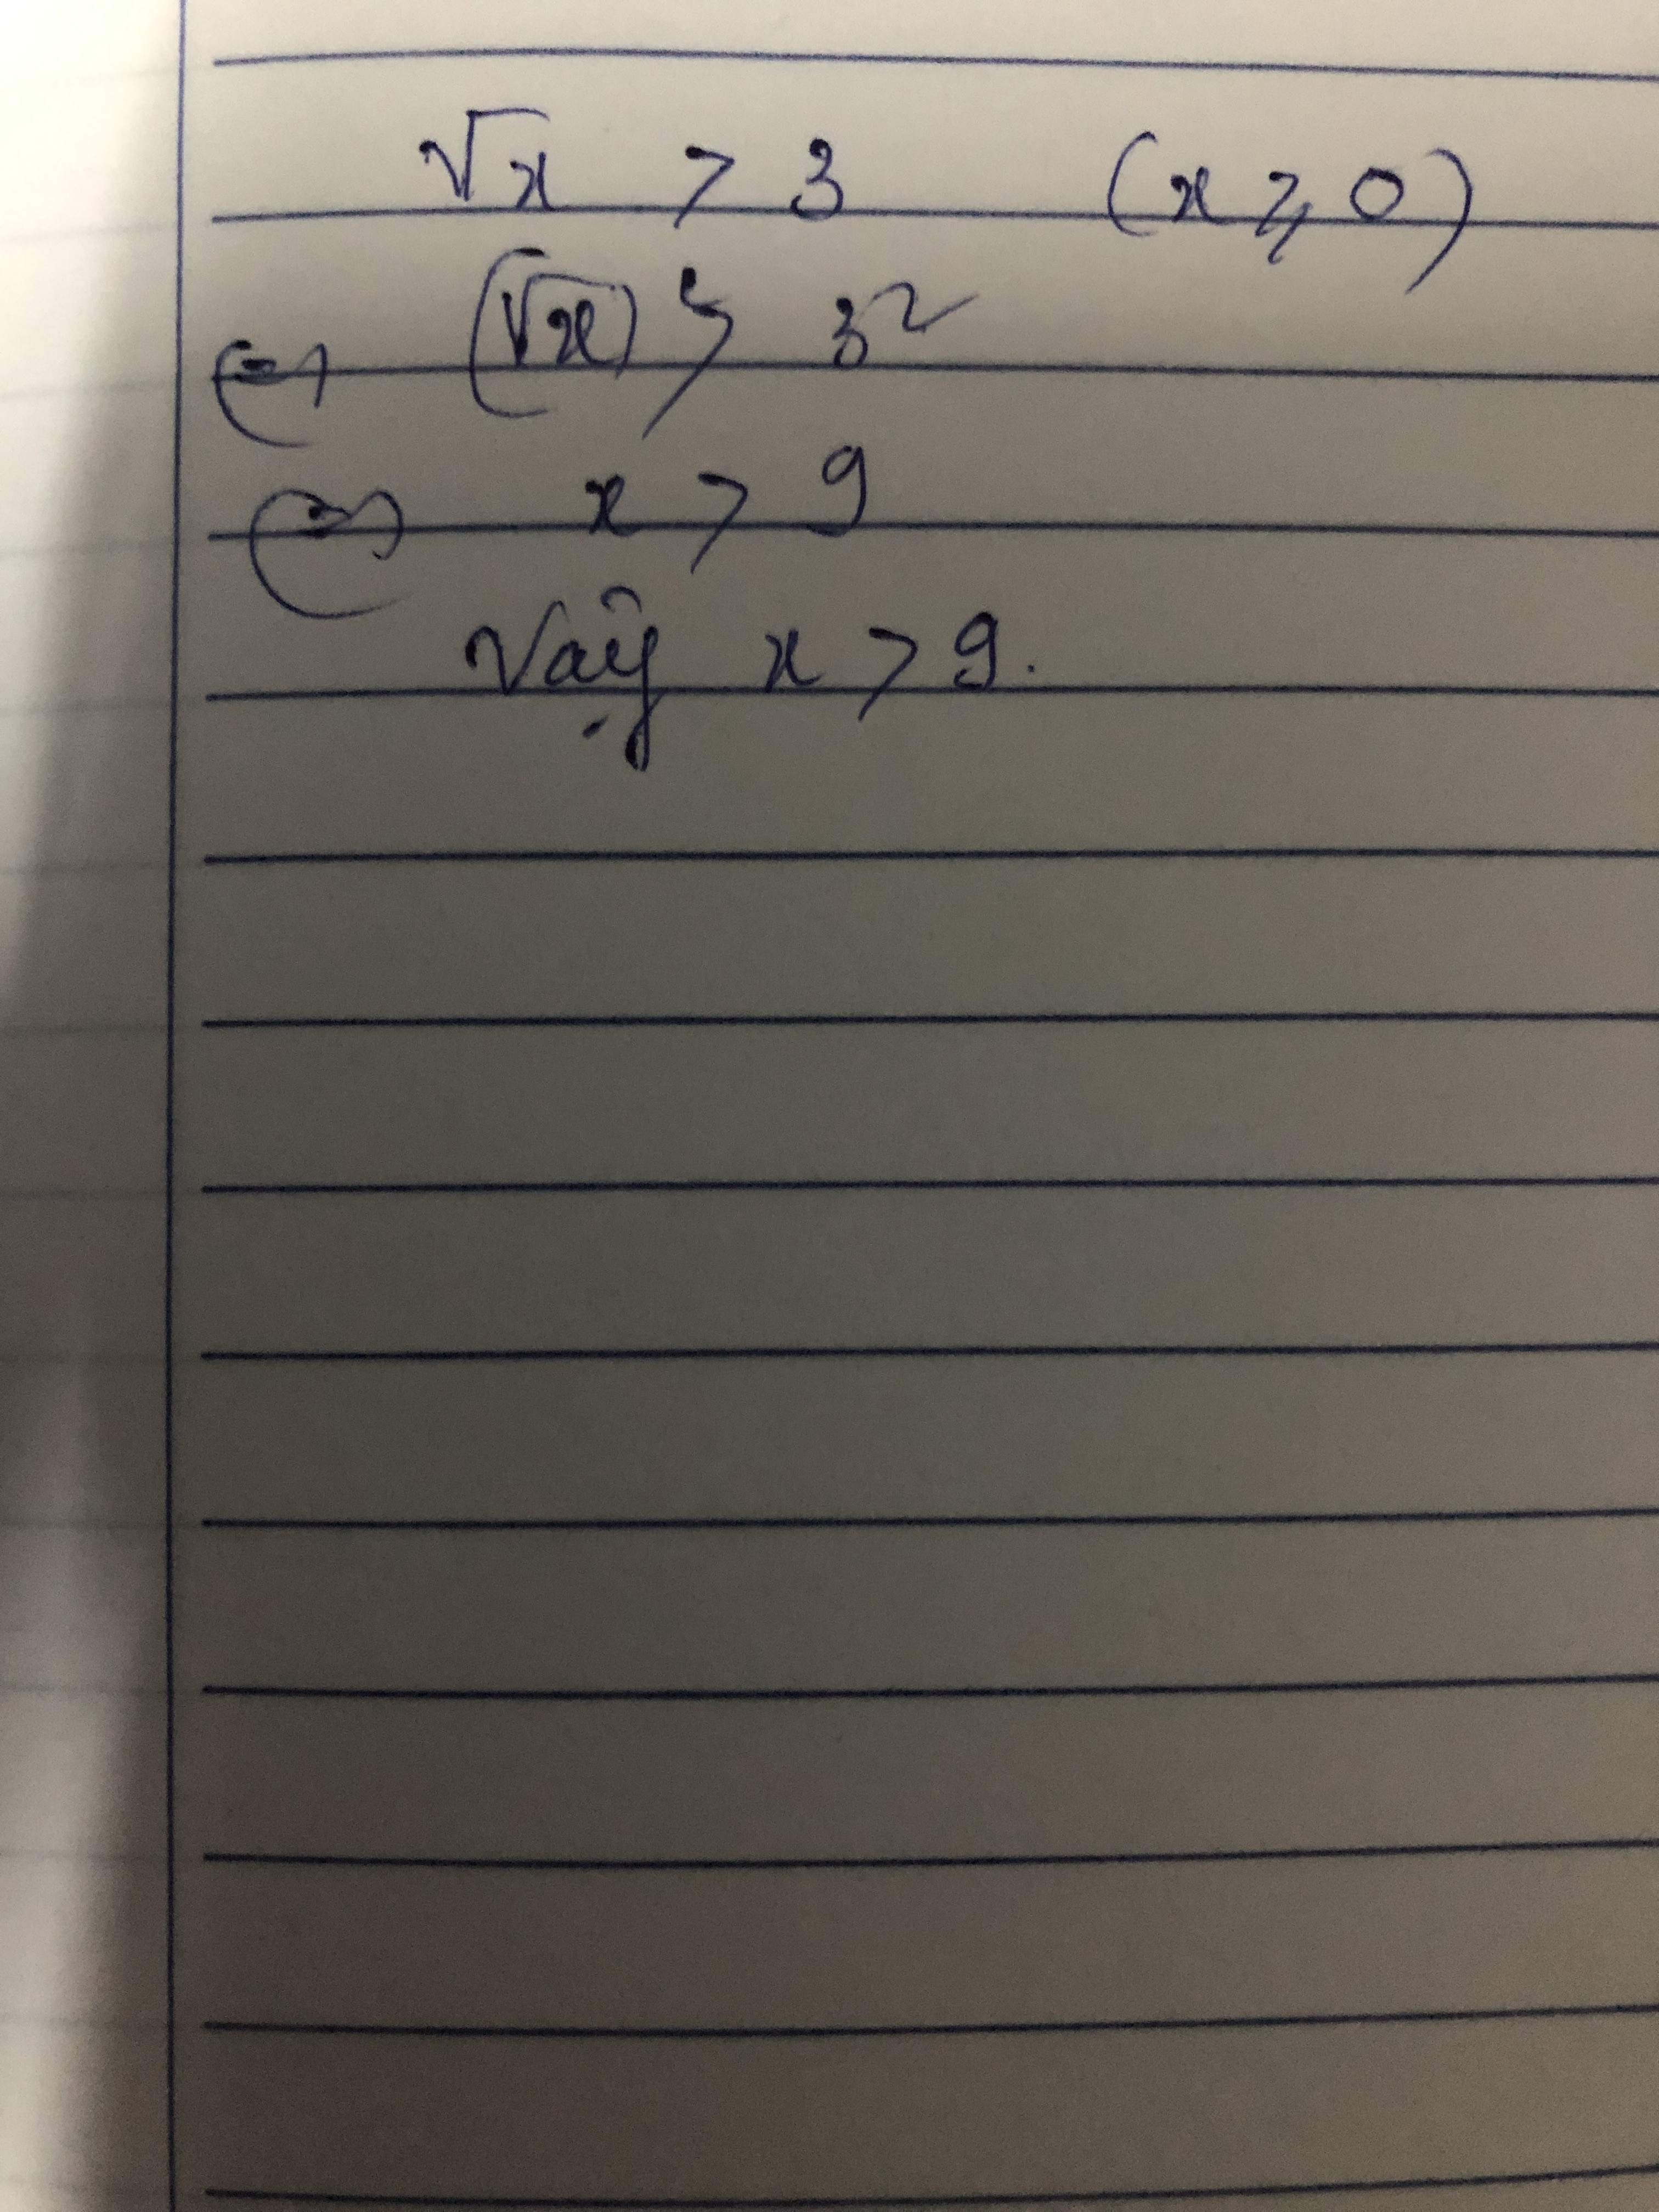 √x > 3 (x ⩾ 0)
⇔ (√x)² > 3²
⇔ x > 9
Vậy x > 9.